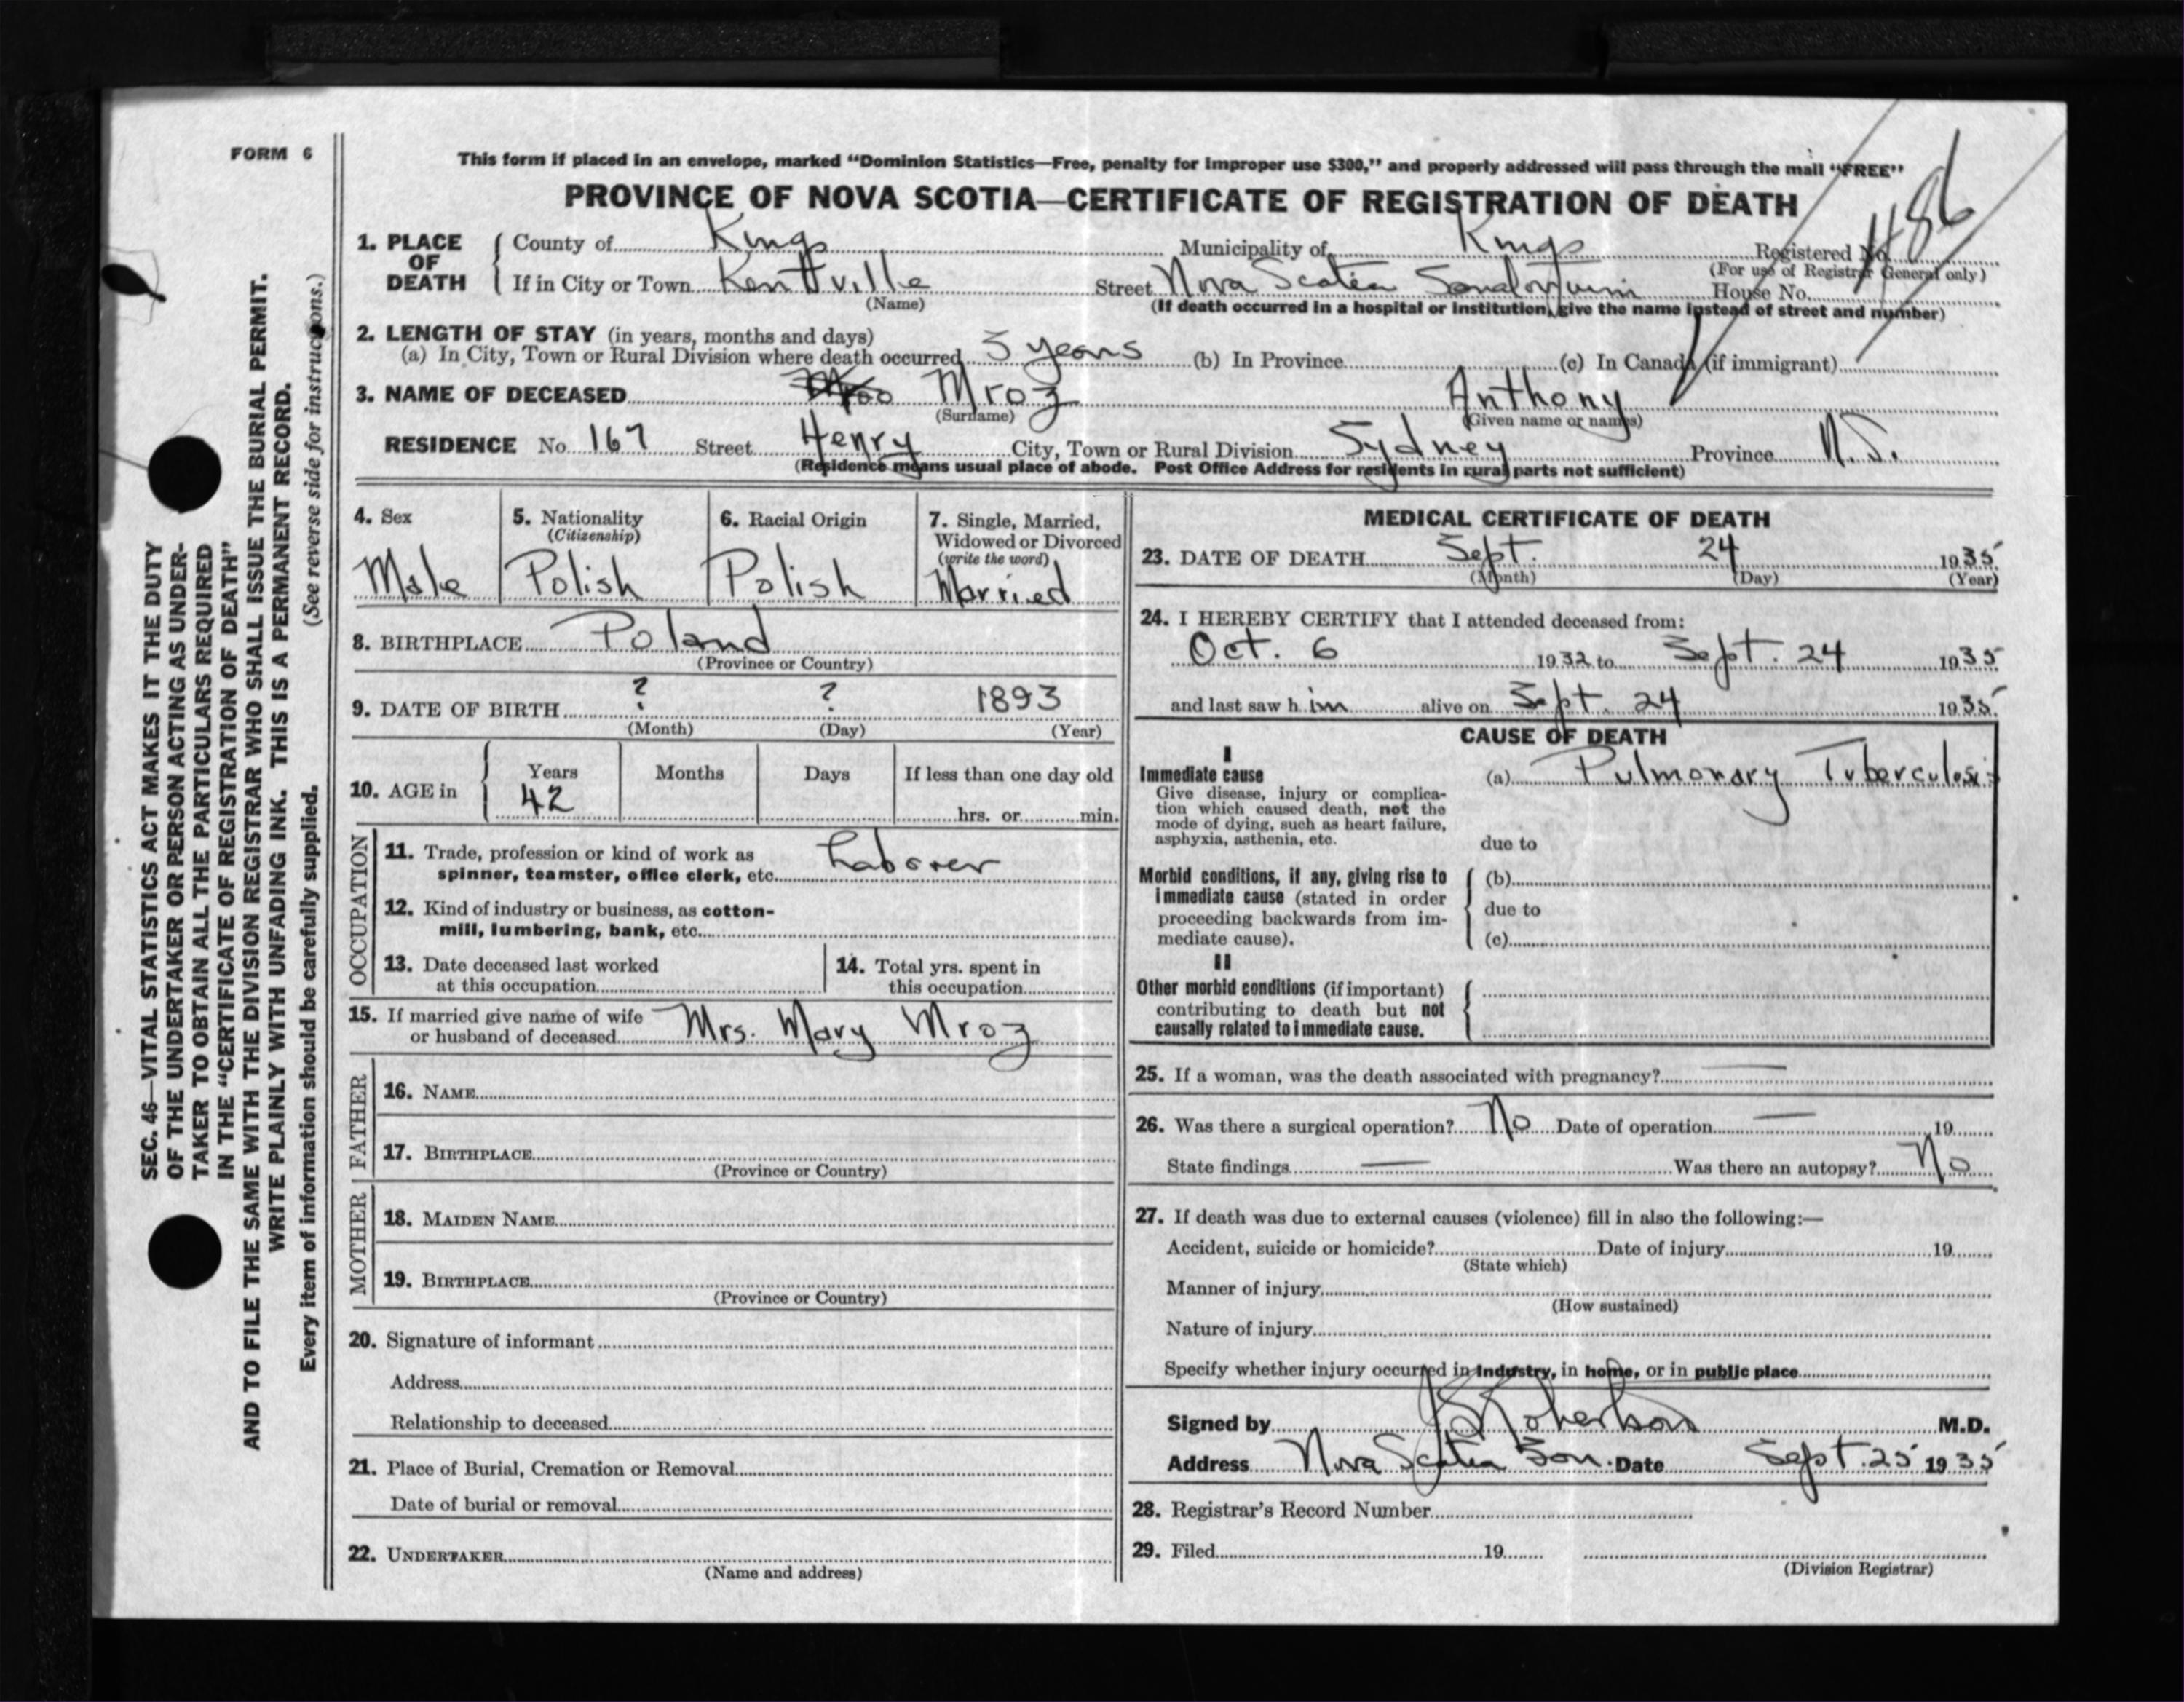 FORM 6
This form if placed in an envelope, marked “Dominion Statistics—Free, penalty for improper use $300,” and properly addressed will pass through the mail “FREE”
PROVINCE OF NOVA SCOTIA—CERTIFICATE OF REGISTRATION OF DEATH
1. PLACE OF DEATH { County of Kings Municipality of Kings Registered No.
(For use of Registrar General only)
If in City or Town Kentville Street Nova Scotia Sanatorium House No.
(Name) (If death occurred in a hospital or institution, give the name instead of street and number)
2. LENGTH OF STAY (in years, months and days)
(a) In City, Town or Rural Division where death occurred 3 years (b) In Province (c) In Canada (if immigrant)
3. NAME OF DECEASED Mroz Anthony
(Surname) (Given name or names)
RESIDENCE No. 167 Street Henry City, Town or Rural Division Sydney Province N.S.
(Residence means usual place of abode. Post Office Address for residents in rural parts not sufficient)
4. Sex 5. Nationality 6. Racial Origin 7. Single, Married,
(Citizenship) Widowed or Divorced
(write the word)
Male Polish Polish Married
8. BIRTHPLACE Poland
(Province or Country)
9. DATE OF BIRTH ? ? 1893
(Month) (Day) (Year)
10. AGE in { Years Months Days If less than one day old
42 hrs. or min.
OCCUPATION
11. Trade, profession or kind of work as
spinner, teamster, office clerk, etc. Laborer
12. Kind of industry or business, as cotton-
mill, lumbering, bank, etc.
13. Date deceased last worked
at this occupation
14. Total yrs. spent in
this occupation
15. If married give name of wife
or husband of deceased Mrs. Mary Mroz
FATHER
16. NAME
17. BIRTHPLACE
(Province or Country)
MOTHER
18. MAIDEN NAME
19. BIRTHPLACE
(Province or Country)
20. Signature of informant
Address
Relationship to deceased
21. Place of Burial, Cremation or Removal
Date of burial or removal
22. UNDERTAKER
(Name and address)
MEDICAL CERTIFICATE OF DEATH
23. DATE OF DEATH Sept. 24 1935
(Month) (Day) (Year)
24. I HEREBY CERTIFY that I attended deceased from:
Oct. 6 1932 to Sept. 24 1935
and last saw h im alive on Sept. 24 1935
CAUSE OF DEATH
I
Immediate cause (a) Pulmonary Tuberculosis
Give disease, injury or complica-
tion which caused death, not the
mode of dying, such as heart failure,
asphyxia, asthenia, etc. due to
Morbid conditions, if any, giving rise to (b)
immediate cause (stated in order due to
proceeding backwards from im-
mediate cause). (c)
II
Other morbid conditions (if important)
contributing to death but not
causally related to immediate cause.
25. If a woman, was the death associated with pregnancy? —
26. Was there a surgical operation? No Date of operation — 19
State findings — Was there an autopsy? No
27. If death was due to external causes (violence) fill in also the following:—
Accident, suicide or homicide? Date of injury 19
(State which)
Manner of injury
(How sustained)
Nature of injury
Specify whether injury occurred in industry, in home, or in public place
Signed by Robertson M.D.
Address Nova Scotia San. Date Sept. 25 1935
28. Registrar's Record Number
29. Filed 19
(Division Registrar)
SEC. 46—VITAL STATISTICS ACT MAKES IT THE DUTY
OF THE UNDERTAKER OR PERSON ACTING AS UNDER-
TAKER TO OBTAIN ALL THE PARTICULARS REQUIRED
IN THE “CERTIFICATE OF REGISTRATION OF DEATH”
AND TO FILE THE SAME WITH THE DIVISION REGISTRAR WHO SHALL ISSUE THE BURIAL PERMIT.
WRITE PLAINLY WITH UNFADING INK. THIS IS A PERMANENT RECORD.
Every item of information should be carefully supplied. (See reverse side for instructions.)